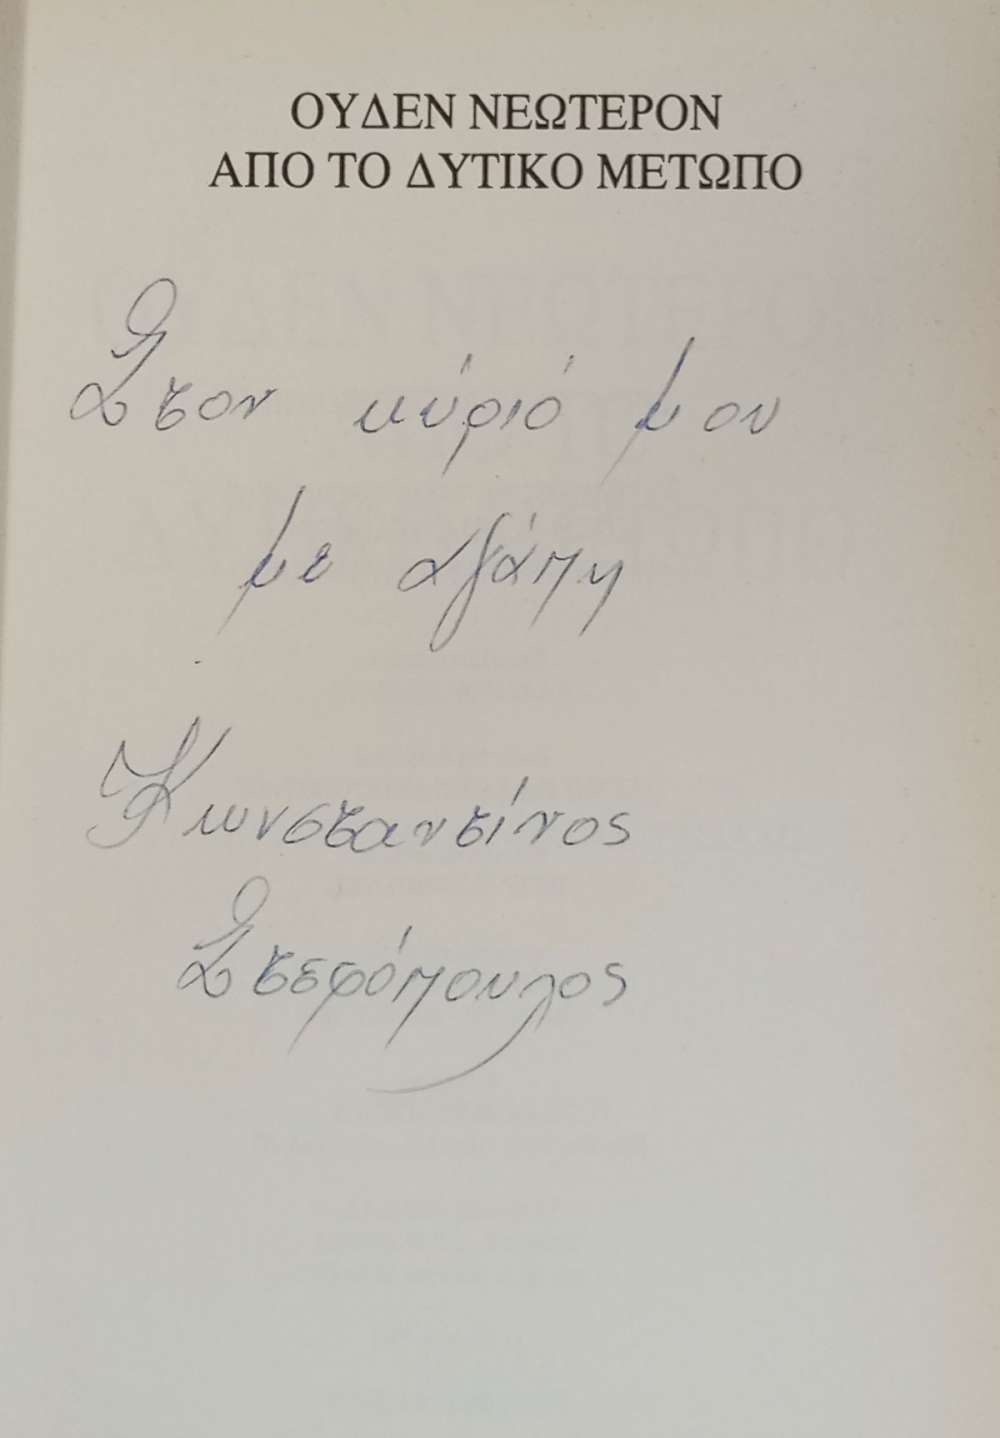 ΟΥΔΕΝ ΝΕΩΤΕΡΟΝ
ΑΠΟ ΤΟ ΔΥΤΙΚΟ ΜΕΤΩΠΟ
Στον κύριό μου
με αγάπη
Κωνσταντίνος
Στεφόπουλος